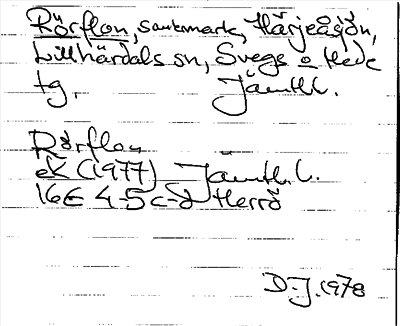 Rörflon, sankmark, Härjeåsjön,
Lillhärdals sn, Svegs o Hede
tg, Jämtl.
Rörflon
eK (1977) Jämtl. l.
16E 4-5c-d Herrö
D-J. 1978